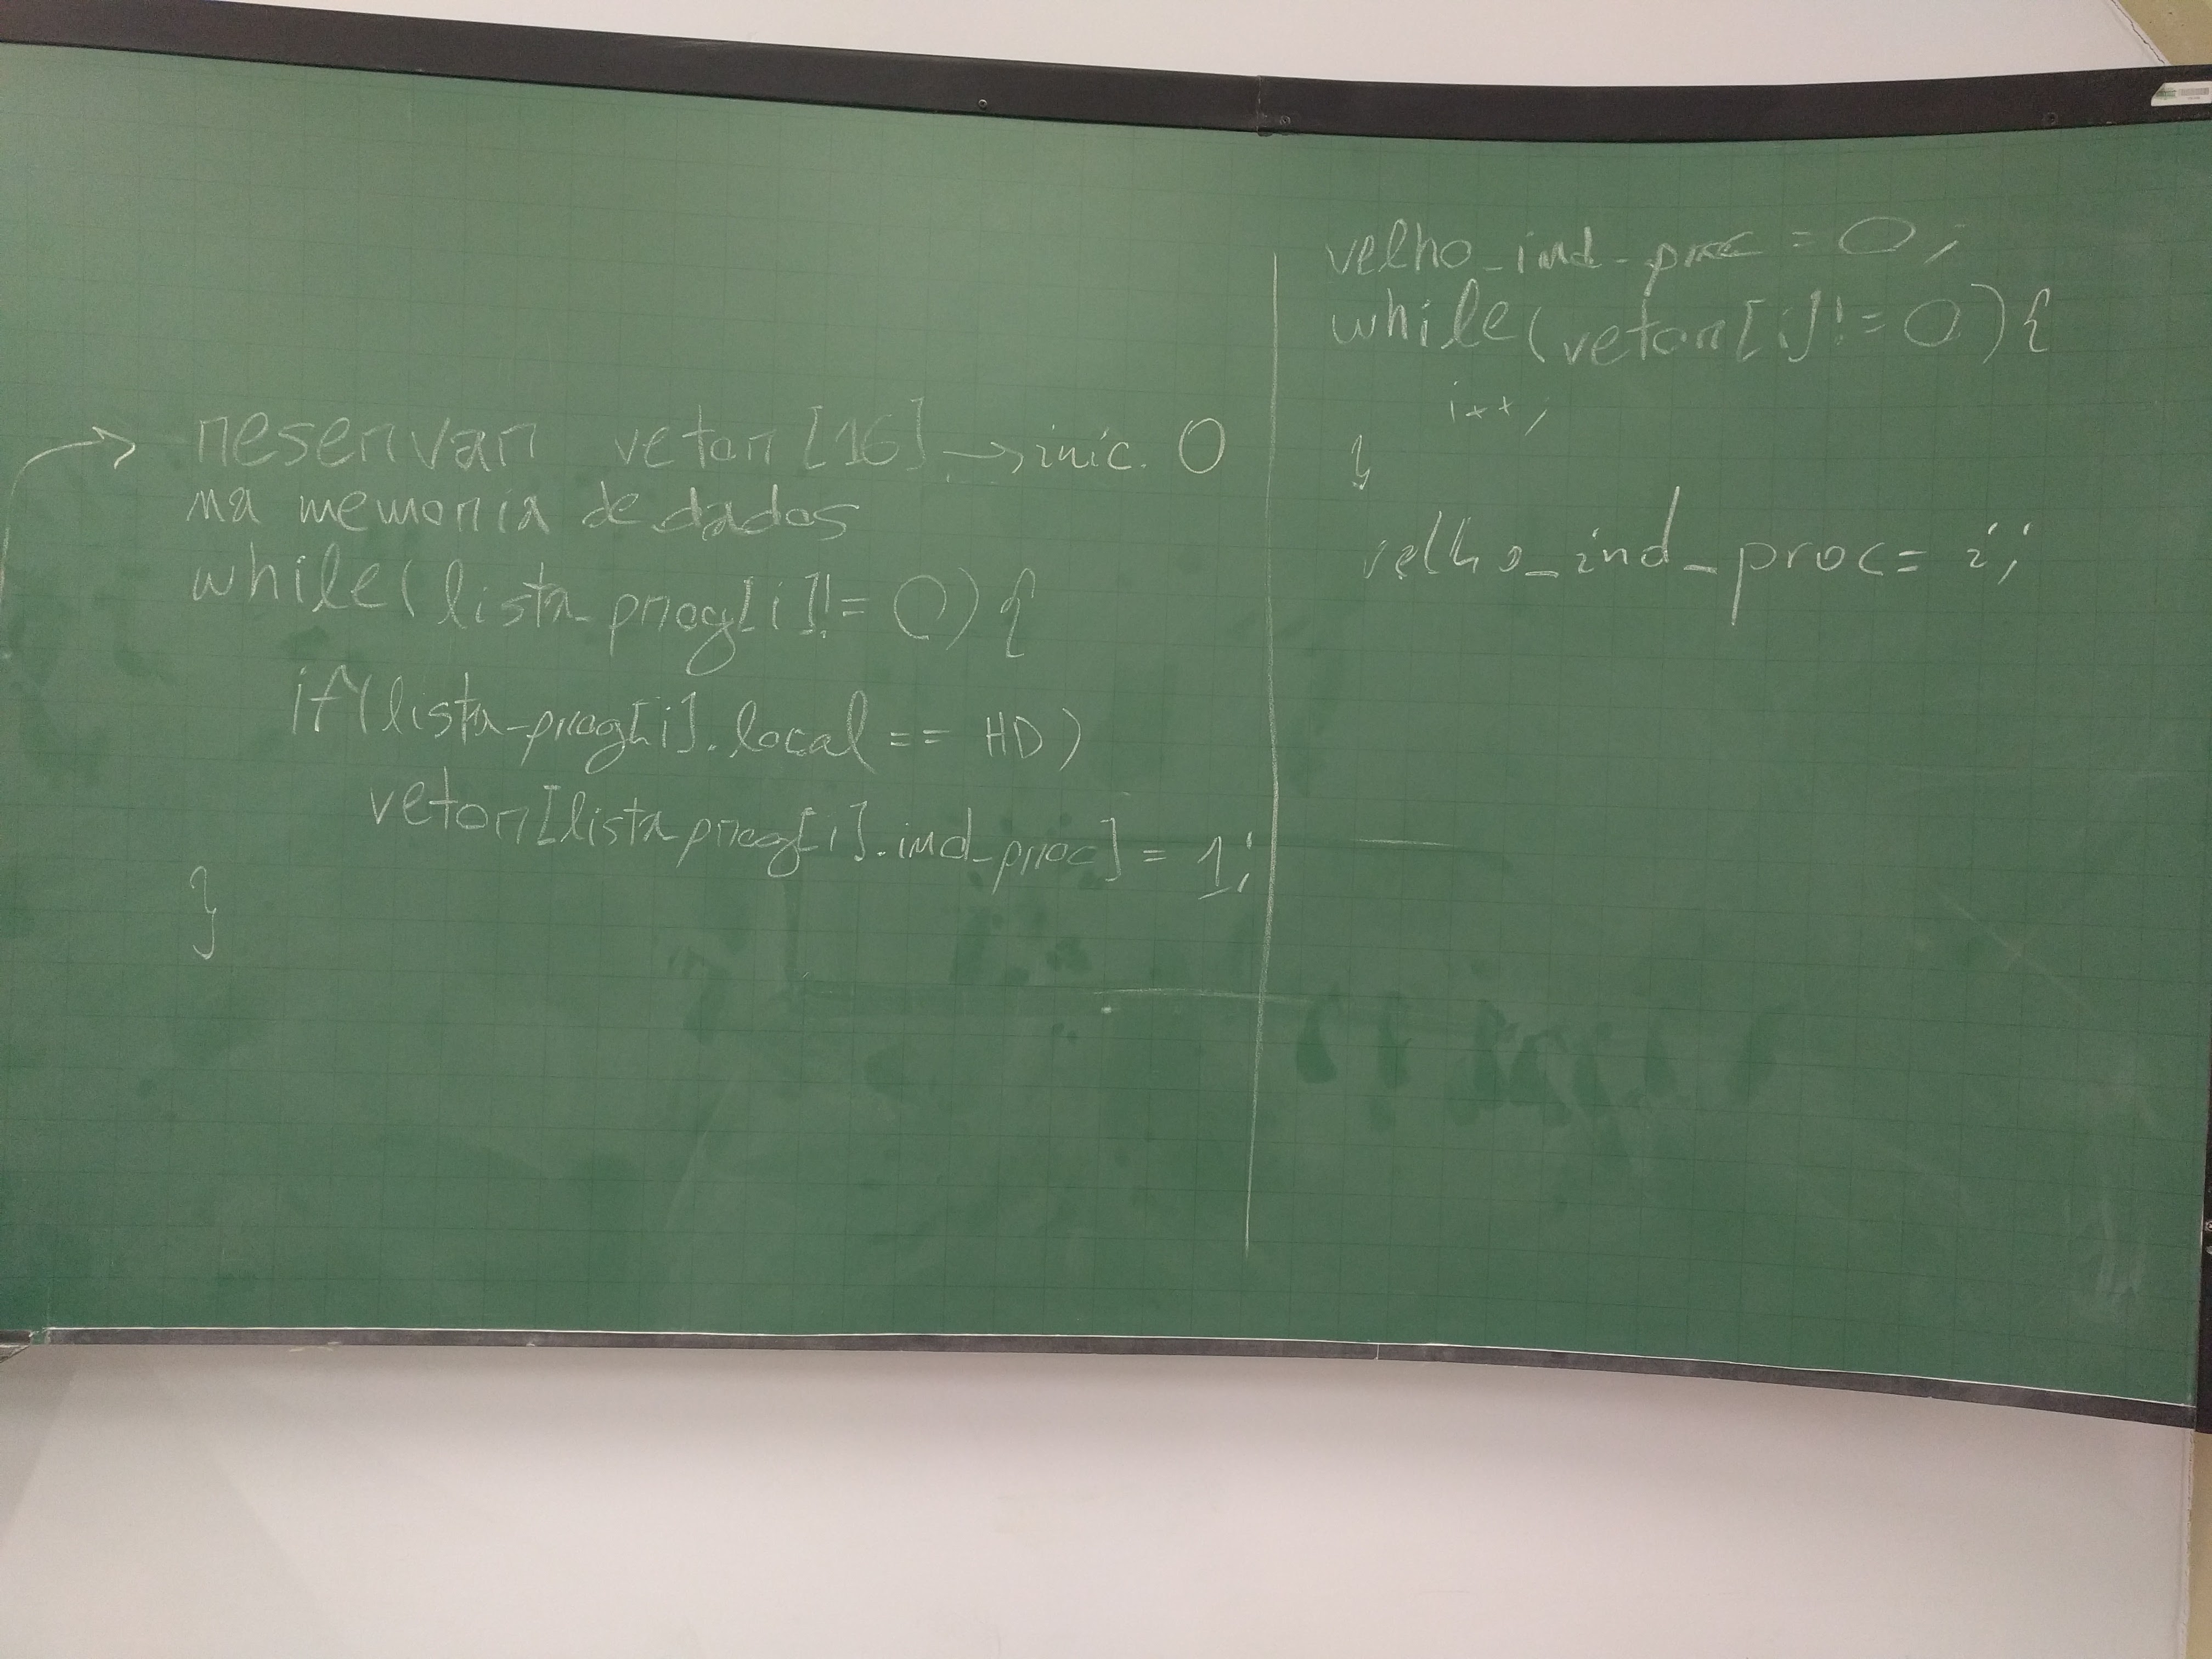 reservar vetor [16] → inic. 0
na memoria de dados
while(lista_prog[i]!= 0){
if(lista_prog[i].local == HD)
vetor[lista_prog[i].ind_proc] = 1;
}
velho_ind_proc = 0;
while(vetor[i]!= 0){
i++;
}
velho_ind_proc= i;